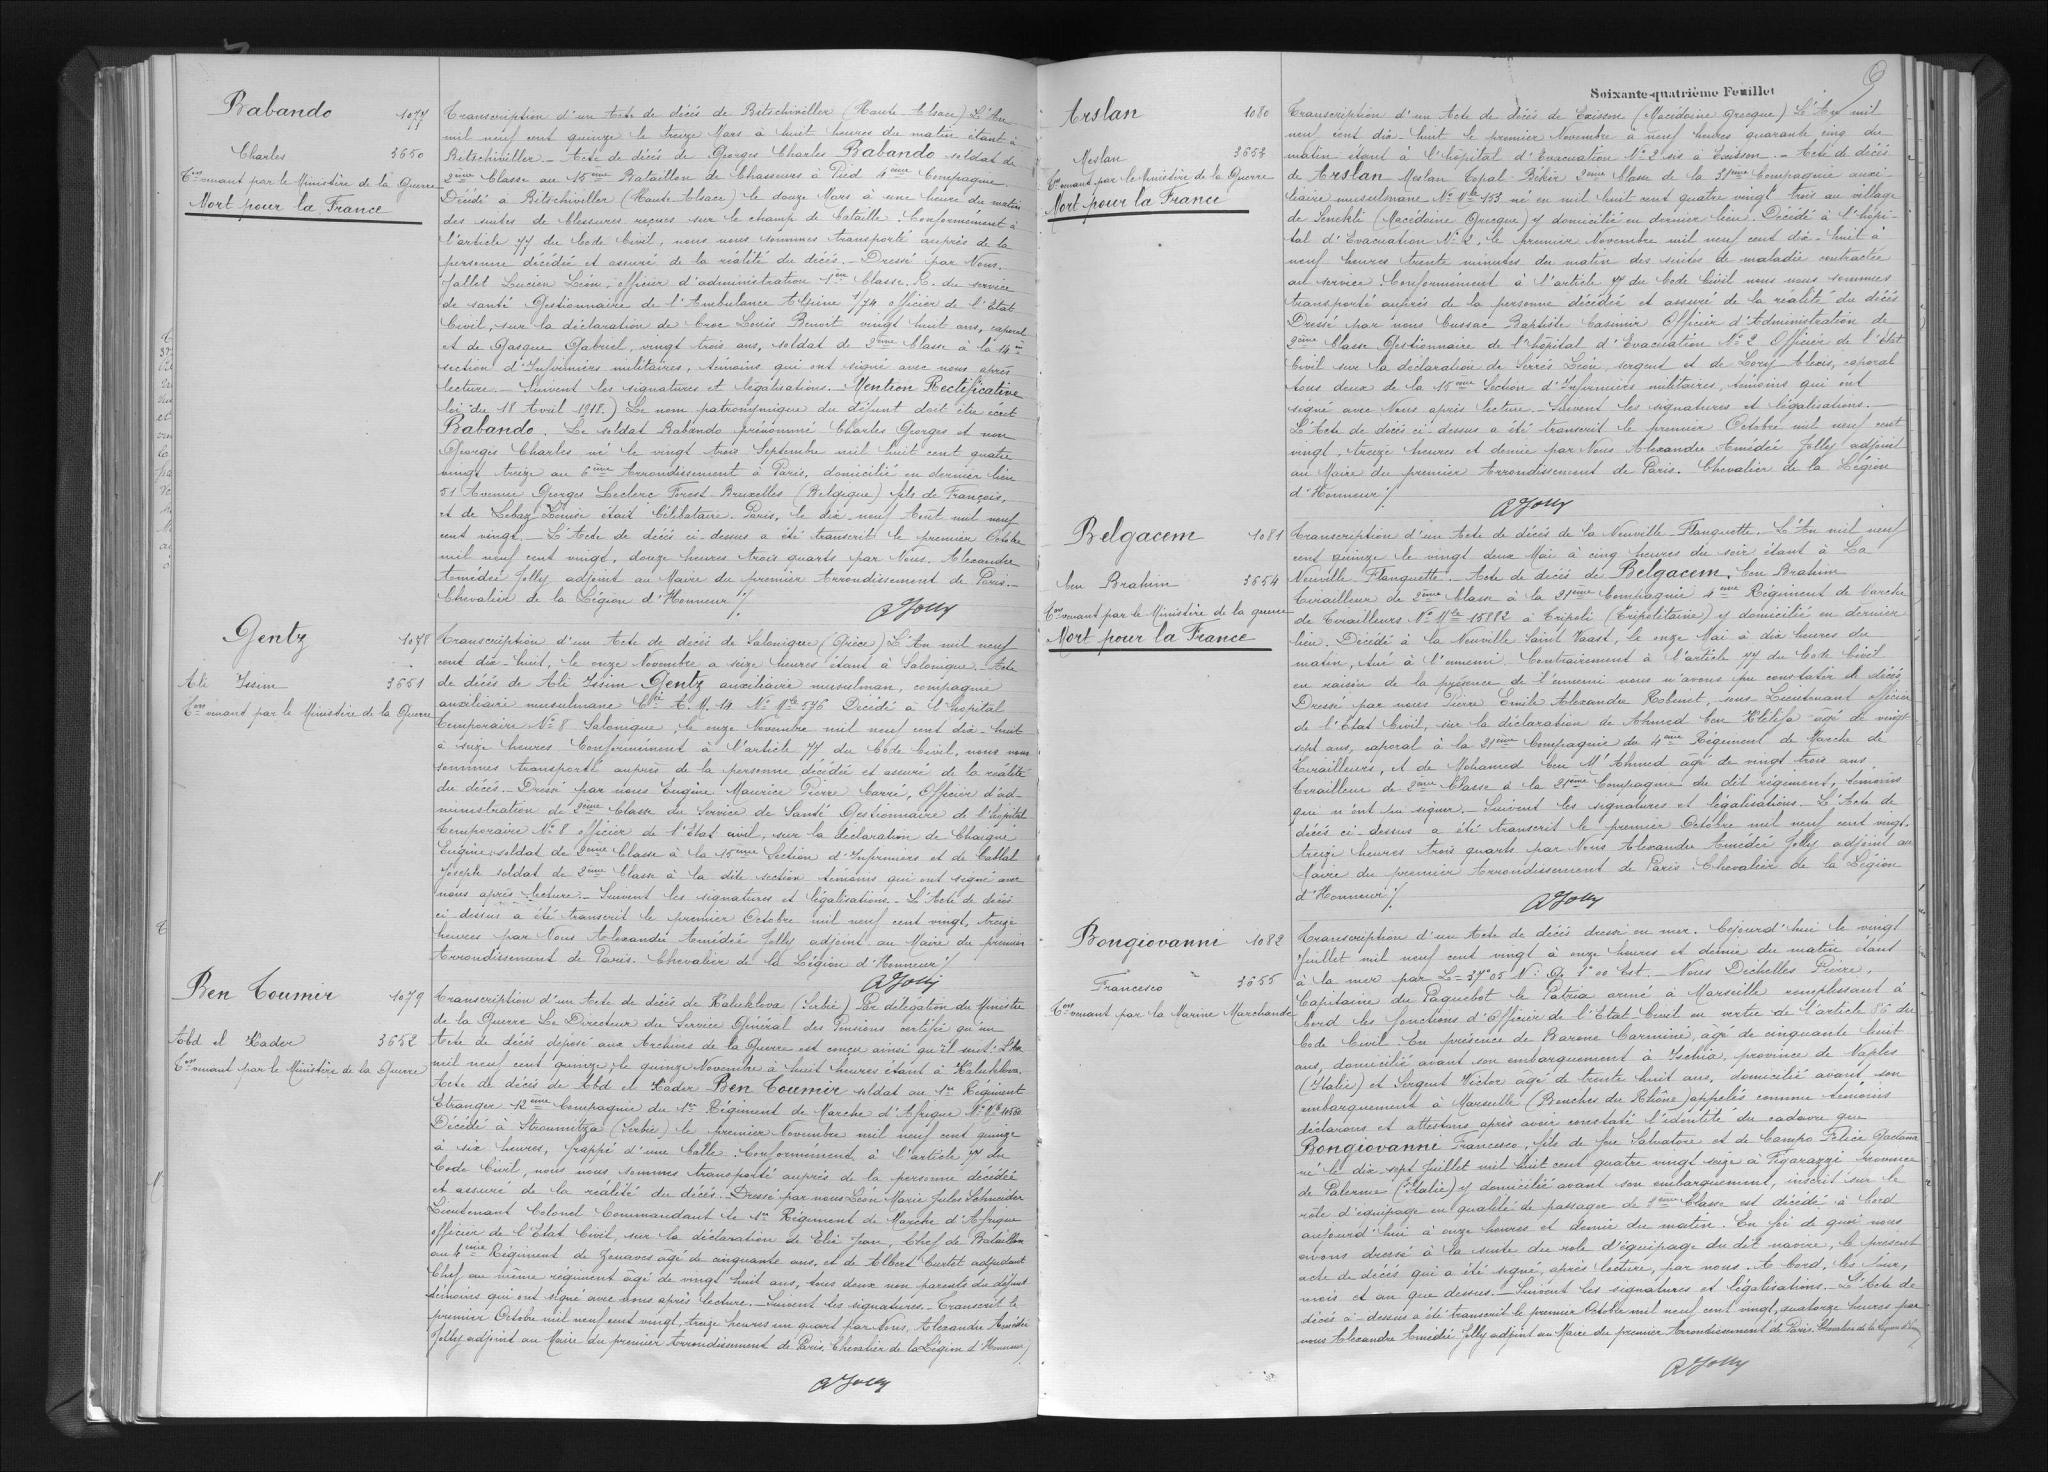 Babando
1077
Charles
3650
Con émanant par le Ministère de la Guerre
Mort pour la France
Transcription d'un Acte de décès de Bitschwiller (Haute-Alsace) L'An
mil neuf cent quinze le treize Mars à huit heures du matin étant à
Bitschwiller. - Acte de décès de Georges Charles Babando soldat de
2ème Classe au 15ème Bataillon de Chasseurs à Pied 4ème Compagnie
Décédé a Bitschwiller (Haute Alsace) le douze Mars à une heure du matin
des suites de blessures reçues sur le champ de bataille. Conformément à
l'article 77 du Code Civil, nous nous sommes transporté auprès de la
personne décédée et assuré de la réalité du décès. - Dressé par Nous.
Jallet Lucien Léon, officier d'administration 1ère Classe. du service
de santé Gestionnaire de l'Ambulance Alpine 1/74 officier de l'Etat
Civil, sur la déclaration de Croc Louis Benoit vingt huit ans, caporal
et de Gasque Gabriel, vingt trois ans, soldat de 2ème Classe à la 14e
section d'Infirmiers militaires, témoins qui ont signé avec nous après
lecture. - Suivent les signatures et légalisations. Mention Rectificative
loi du 18 Avril 1918.) Le nom patronymique du défunt doit être écrit
Babando. Le soldat Babando prénommé Charles Georges et non
Georges Charles né le vingt trois Septembre mil huit cent quatre
vingt treize au 6ème Arrondissement à Paris, domicilié en dernier lieu
51 Avenue Georges Leclerc Forest Bruxelles (Belgique) fils de François,
et de Louise était Célibataire. Paris, le dix-neuf Août mil neuf
cent vingt. - L'Acte de décès ci-dessus a été transcrit le premier Octobre
mil neuf cent vingt, douze heures trois quarts par Nous. Alexandre
Amédée Jolly, adjoint au Maire du premier Arrondissement de Paris. -
Chevalier de la Légion d'Honneur ./.
AJolly
Gentz
1078
Ali Issim
3651
Con émanant par le Ministère de la Guerre
Transcription d'un Acte de décès de Salonique (Grèce) L'An mil neuf
cent dix-huit, le onze Novembre a seize heures étant à Salonique. Acte
de décès de Ali Issim Gentz auxiliaire musulman, compagnie
auxiliaire musulmane Cie A. M. 14 No Mle 576 Décédé à l'hôpital
temporaire No 8 Salonique, le onze Novembre mil neuf cent dix-huit
à seize heures Conformément à l'article 77 du Code Civil, nous nous
sommes transporté auprès de la personne décédée et assuré de la réalité
du décès. Dressé par nous Eugène Maurice Pierre Carré, Officier d'ad-
ministration de 2ème Classe du Service de Santé Gestionnaire de l'hôpital
temporaire No 8 officier de l'Etat civil, sur la déclaration de Chaigne
Eugène, soldat de 2ème Classe à la 15ème Section d'Infirmiers et de Cablat
Joseph soldat de 2ème Classe à la dite section témoins qui ont signé avec
nous après lecture. - Suivent les signatures et légalisations. - L'Acte de décès
ci-dessus a été transcrit le premier Octobre mil neuf cent vingt, treize
heures par Nous Alexandre Amédée Jolly adjoint au Maire du premier
Arrondissement de Paris. Chevalier de la Légion d'Honneur ./.
AJolly
Ben Toumir
1079
Abd el Kader
3652
Con émanant par le Ministère de la Guerre
Transcription d'un Acte de décès de Kalukléva (Serbie) Par délégation du Ministre
de la Guerre Le Directeur du Service Général des Pensions certifie qu'un
Acte de décès déposé aux Archives de la Guerre est conçu ainsi qu'il suit: L'An
mil neuf cent quinze, le quinze Novembre à huit heures étant à Kalukléva.
Acte de décès de Abd el Kader Ben Toumir soldat au 1er Régiment
Etranger 12ème Compagnie du 1er Régiment de Marche d'Afrique No Mle
Décédé à Stroumitza (Serbie) le premier Novembre mil neuf cent quinze
à six heures, frappé d'une balle. Conformément à l'article 77 du
Code Civil, nous nous sommes transporté auprès de la personne décédée
et assuré de la réalité du décès. Dressé par nous Léon Marie Jules Schneider
Lieutenant Colonel Commandant le 1er Régiment de Marche d'Afrique
officier de l'Etat Civil, sur la déclaration de Elie Jean, Chef de Bataillon
au 4ème Régiment de Zouaves âgé de cinquante ans, et de Albert Curtet adjudant
Chef au même régiment âgé de vingt huit ans, tous deux non parents du défunt
témoins qui ont signé avec nous après lecture. - Suivent les signatures. - Transcrit le
premier Octobre mil neuf cent vingt, treize heures un quart par Nous, Alexandre Amédée
Jolly adjoint au Maire du premier Arrondissement de Paris. Chevalier de la Légion d'Honneur
AJolly
Soixante-quatrième Feuillet
Arslan
1080
Meslan
3653
Con émanant par le Ministère de la Guerre
Mort pour la France
Transcription d'un Acte de décès de Exissou (Macédoine Grecque) L'An mil
neuf cent dix-huit le premier Novembre à neuf heures quarante cinq du
matin étant à l'hôpital d'Evacuation No 2 sis à Exissou. - Acte de décès
de Arslan Meslan Topal Békir 2ème Classe de la 31ème Compagnie auxi-
liaire musulmane No Mle 153 né en mil huit cent quatre vingt trois au village
de Senekli (Macédoine Grecque) y domicilié en dernier lieu. Décédé à l'hôpi-
tal d'Evacuation No 2, le premier Novembre mil neuf cent dix-huit à
neuf heures trente minutes du matin des suites de maladie contractée
au service. Conformément à l'article 77 du Code Civil nous nous sommes
transporté auprès de la personne décédée et assuré de la réalité du décès
Dressé par nous Cussac Baptiste Casimir Officier d'Administration de
2ème Classe Gestionnaire de l'hôpital d'Evacuation No 2 Officier de l'Etat
Civil sur la déclaration de Serrès Léon, sergent et de Lory Alexis, caporal
tous deux de la 15ème Section d'Infirmiers militaires, témoins qui ont
signé avec Nous après lecture. - Suivent les signatures et légalisations. -
L'Acte de décès ci-dessus a été transcrit le premier Octobre mil neuf cent
vingt, treize heures et demie par Nous Alexandre Amédée Jolly adjoint
au Maire du premier Arrondissement de Paris. Chevalier de la Légion
d'Honneur ./.
AJolly
Belgacem
1081
ben Brahim
3654
Con émanant par le Ministère de la guerre
Mort pour la France
Transcription d'un Acte de décès de la Neuville-Flanquette. L'An mil neuf
cent quinze le vingt deux Mai à cinq heures du soir étant à La
Neuville-Flanquette. Acte de décès de Belgacem, ben Brahim
Tirailleur de 2ème Classe à la 21ème Compagnie 4ème Régiment de Marche
de Tirailleurs No Mle 15882 à Tripoli (Tripolitaine) y domicilié en dernier
lieu. Décédé à la Neuville Saint Vaast, le onze Mai à dix heures du
matin, tué à l'ennemi. Contrairement à l'article 77 du Code Civil
en raison de la présence de l'ennemi nous n'avons pu constater le décès
Dressé par nous Pierre Emile Alexandre Robinet, sous Lieutenant officier
de l'Etat Civil, sur la déclaration de Ahmed ben Khlifa âgé de vingt
sept ans, caporal à la 21ème Compagnie du 4ème Régiment de Marche de
Tirailleurs, et de Mohamed ben M'Ahmed âgé de vingt trois ans
Tirailleur de 2ème Classe à la 21ème Compagnie du dit régiment, témoins
qui n'ont su signer. - Suivent les signatures et légalisations. - L'Acte de
décès ci-dessus a été transcrit le premier Octobre mil neuf cent vingt,
treize heures trois quarts par Nous Alexandre Amédée Jolly adjoint au
Maire du premier Arrondissement de Paris. Chevalier de la Légion
d'Honneur ./.
AJolly
Bongiovanni
1082
Francesco
3655
Con émanant par la Marine Marchande
Transcription d'un Acte de décès dressé en mer. Cejourd'hui le vingt
Juillet mil neuf cent vingt à onze heures et demie du matin étant
à la mer par L= 37°05 N. G. 7°00 Est. - Nous Dechelles Pierre,
Capitaine du Paquebot le Patria armé à Marseille remplissant à
bord les fonctions d'Officier de l'Etat Civil en vertu de l'article 86 du
Code Civil. En présence de Barone Carmine, âgé de cinquante huit
ans, domicilié avant son embarquement à Ischia, province de Naples
(Italie) et Sergent Victor âgé de trente huit ans, domicilié avant son
embarquement à Marseille (Bouches du Rhône) appelés comme témoins
déclarons et attestons après avoir constaté l'identité du cadavre que
Bongiovanni Francesco, fils de feu Salvatore et de Campo Felice Gaetana
né le dix-sept Juillet mil huit cent quatre vingt seize à Figarazzi Province
de Palerme (Italie) y domicilié avant son embarquement, inscrit sur le
rôle d'équipage en qualité de passager de Classe est décédé à bord
aujourd'hui à onze heures et demie du matin. En foi de quoi nous
avons dressé à la suite du role d'équipage du dit navire, le présent
acte de décès qui a été signé, après lecture, par nous. A bord, les jour,
mois et an que dessus. - Suivent les signatures et légalisations. L'Acte de
décès ci-dessus a été transcrit le premier Octobre mil neuf cent vingt, quatorze heures par
nous Alexandre Amédée Jolly adjoint au Maire du premier Arrondissement de Paris. Chevalier de la Légion d'honneur
AJolly